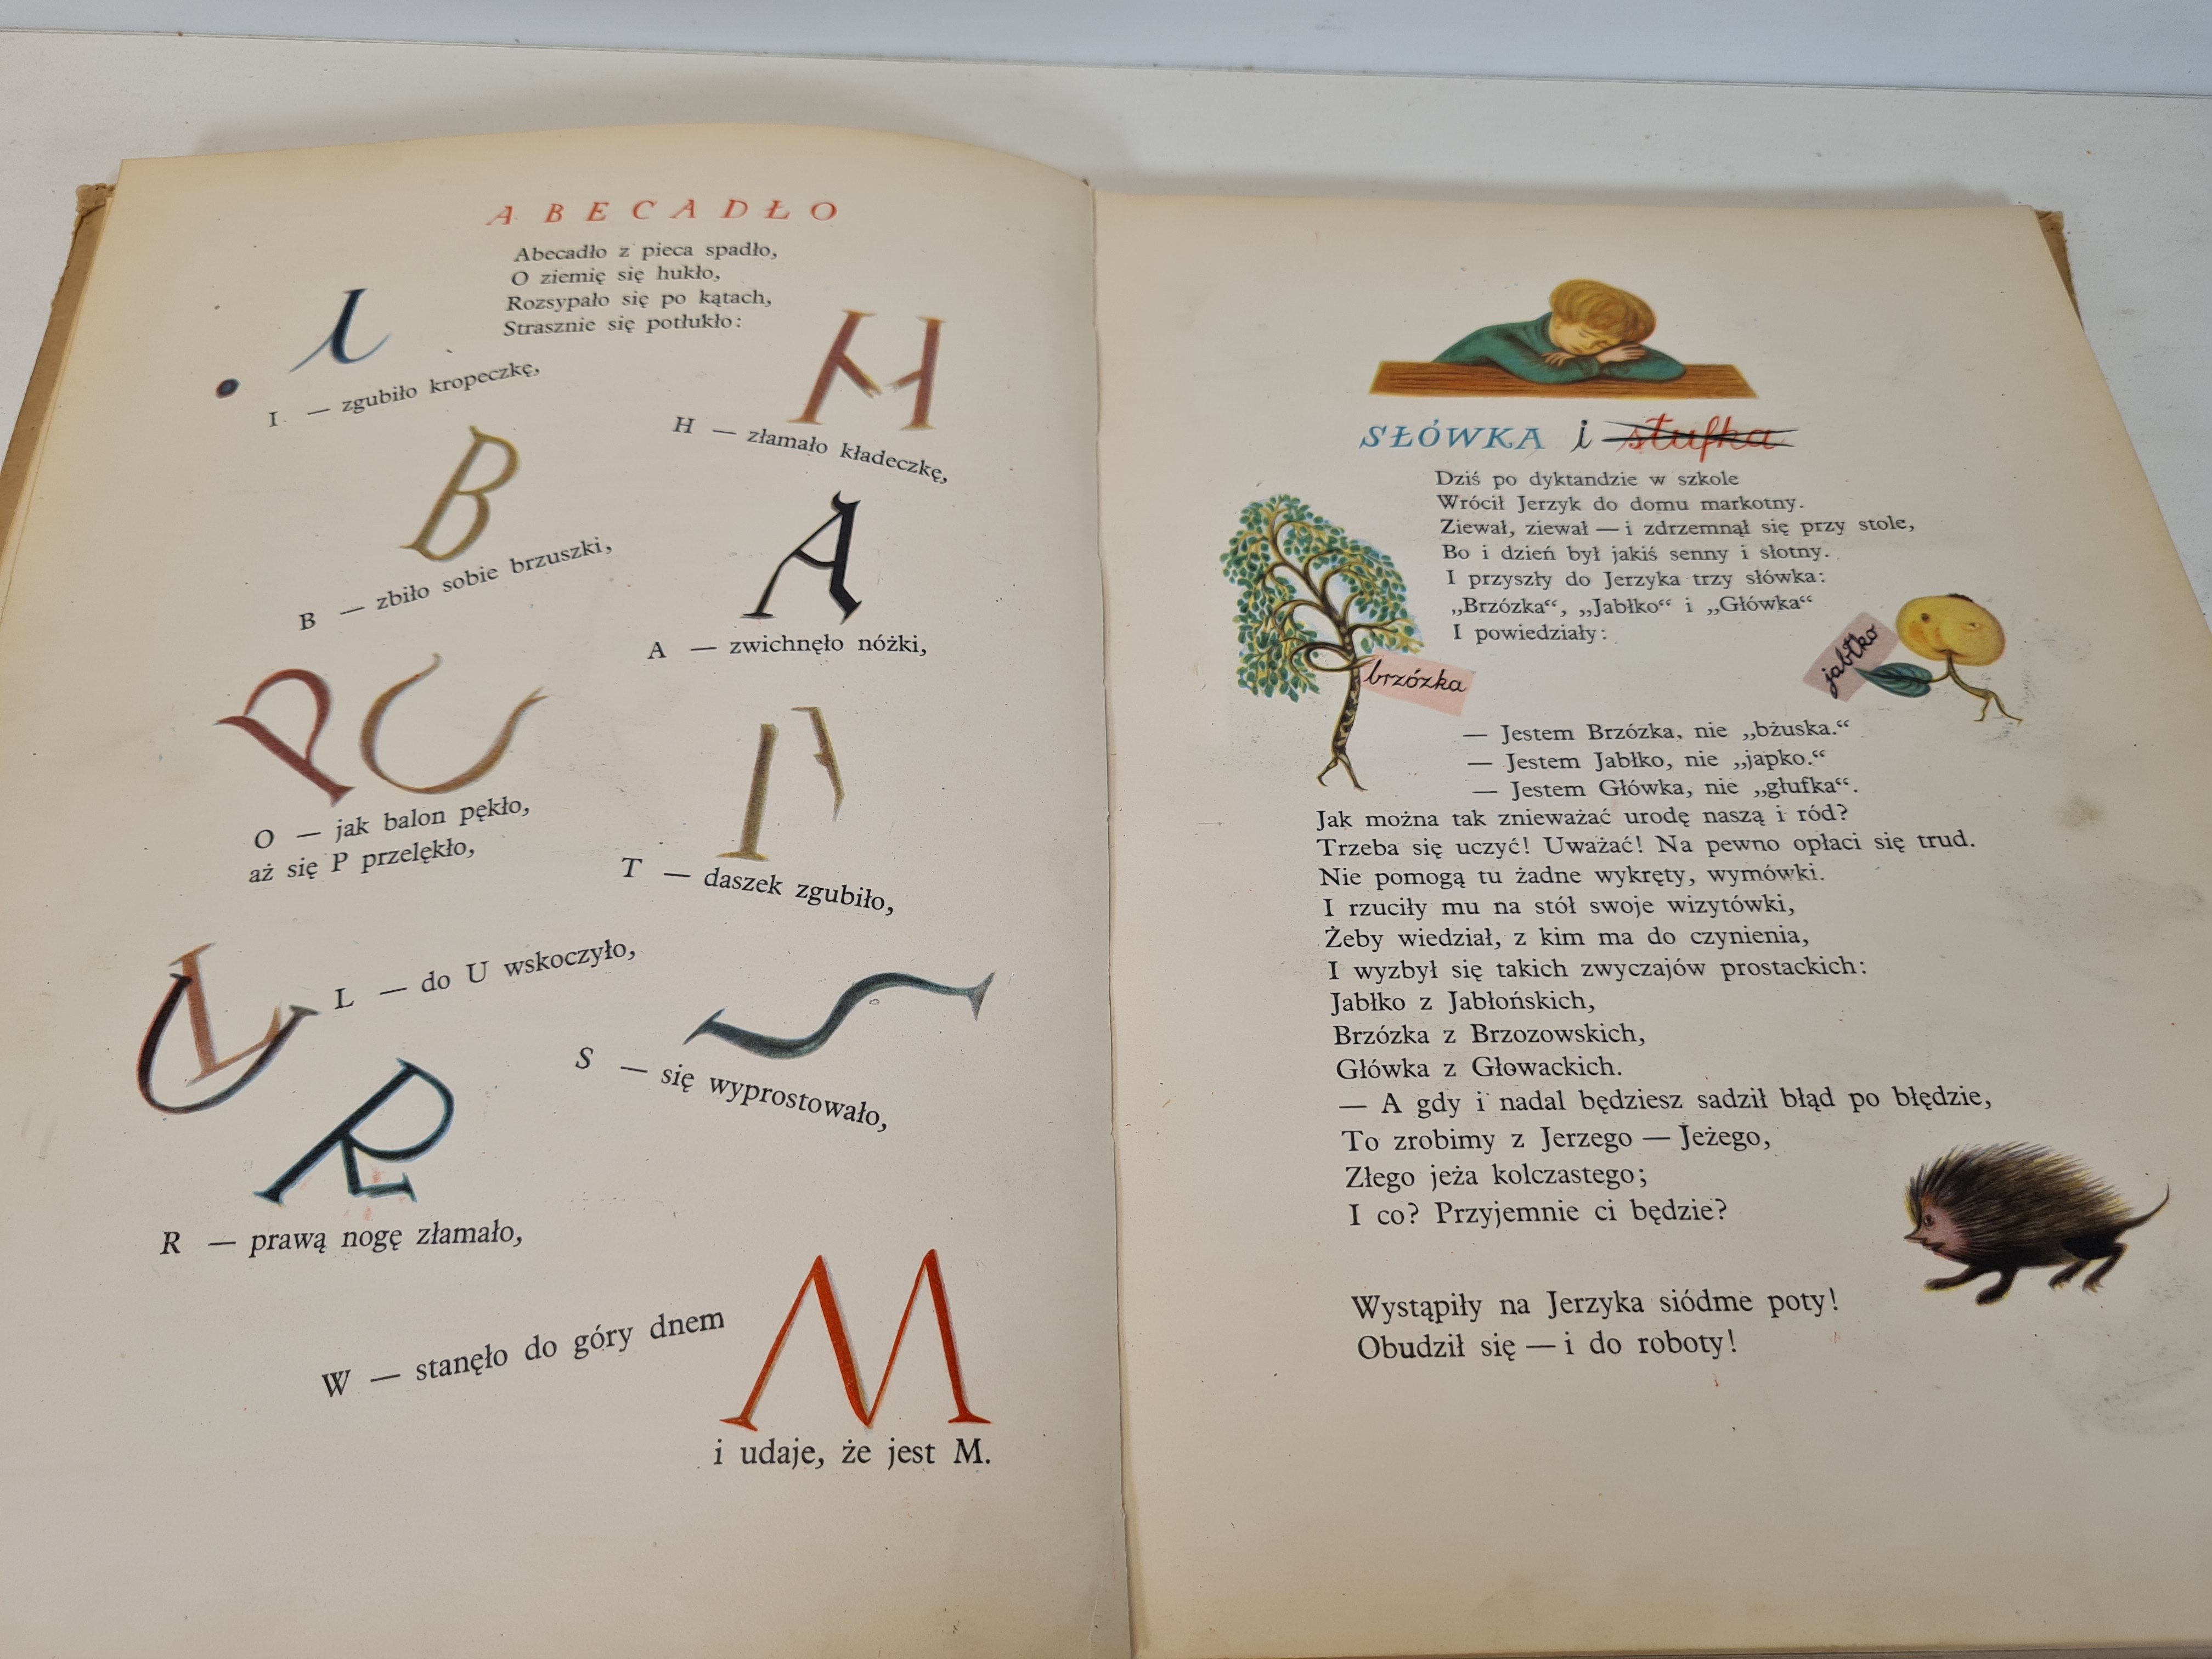 ABECADŁO
Abecadło z pieca spadło,
O ziemię się hukło,
Rozsypało się po kątach,
Strasznie się potłukło:
I — zgubiło kropeczkę,
H — złamało kładeczkę,
B — zbiło sobie brzuszki,
A — zwichnęło nóżki,
O — jak balon pękło,
aż się P przelękło,
T — daszek zgubiło,
L — do U wskoczyło,
S — się wyprostowało,
R — prawą nogę złamało,
W — stanęło do góry dnem
M
i udaje, że jest M.
SŁÓWKA i stufka
Dziś po dyktandzie w szkole
Wrócił Jerzyk do domu markotny.
Ziewał, ziewał — i zdrzemnął się przy stole,
Bo i dzień był jakiś senny i słotny.
I przyszły do Jerzyka trzy słówka:
„Brzózka“, „Jabłko“ i „Główka“
I powiedziały:
brzózka
jabłko
— Jestem Brzózka, nie „bżuska.“
— Jestem Jabłko, nie „japko.“
— Jestem Główka, nie „głufka“.
Jak można tak znieważać urodę naszą i ród?
Trzeba się uczyć! Uważać! Na pewno opłaci się trud.
Nie pomogą tu żadne wykręty, wymówki.
I rzuciły mu na stół swoje wizytówki,
Żeby wiedział, z kim ma do czynienia,
I wyzbył się takich zwyczajów prostackich:
Jabłko z Jabłońskich,
Brzózka z Brzozowskich,
Główka z Głowackich.
— A gdy i nadal będziesz sadził błąd po błędzie,
To zrobimy z Jerzego — Jeżego,
Złego jeża kolczastego;
I co? Przyjemnie ci będzie?
Wystąpiły na Jerzyka siódme poty!
Obudził się — i do roboty!